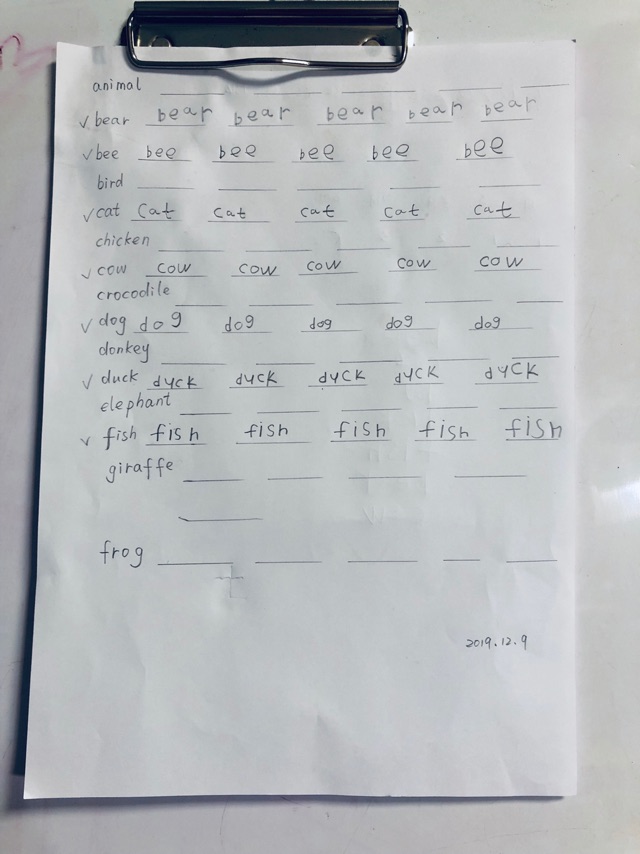 animal
✓ bear bear bear bear bear bear
✓ bee bee bee bee bee bee
bird
✓ cat cat cat cat cat cat
chicken
✓ cow cow cow cow cow cow
crocodile
✓ dog dog dog dog dog dog
donkey
✓ duck dyck dyck dyck dyck dyck
elephant
✓ fish fish fish fish fish fish
giraffe
frog
2019.12.9